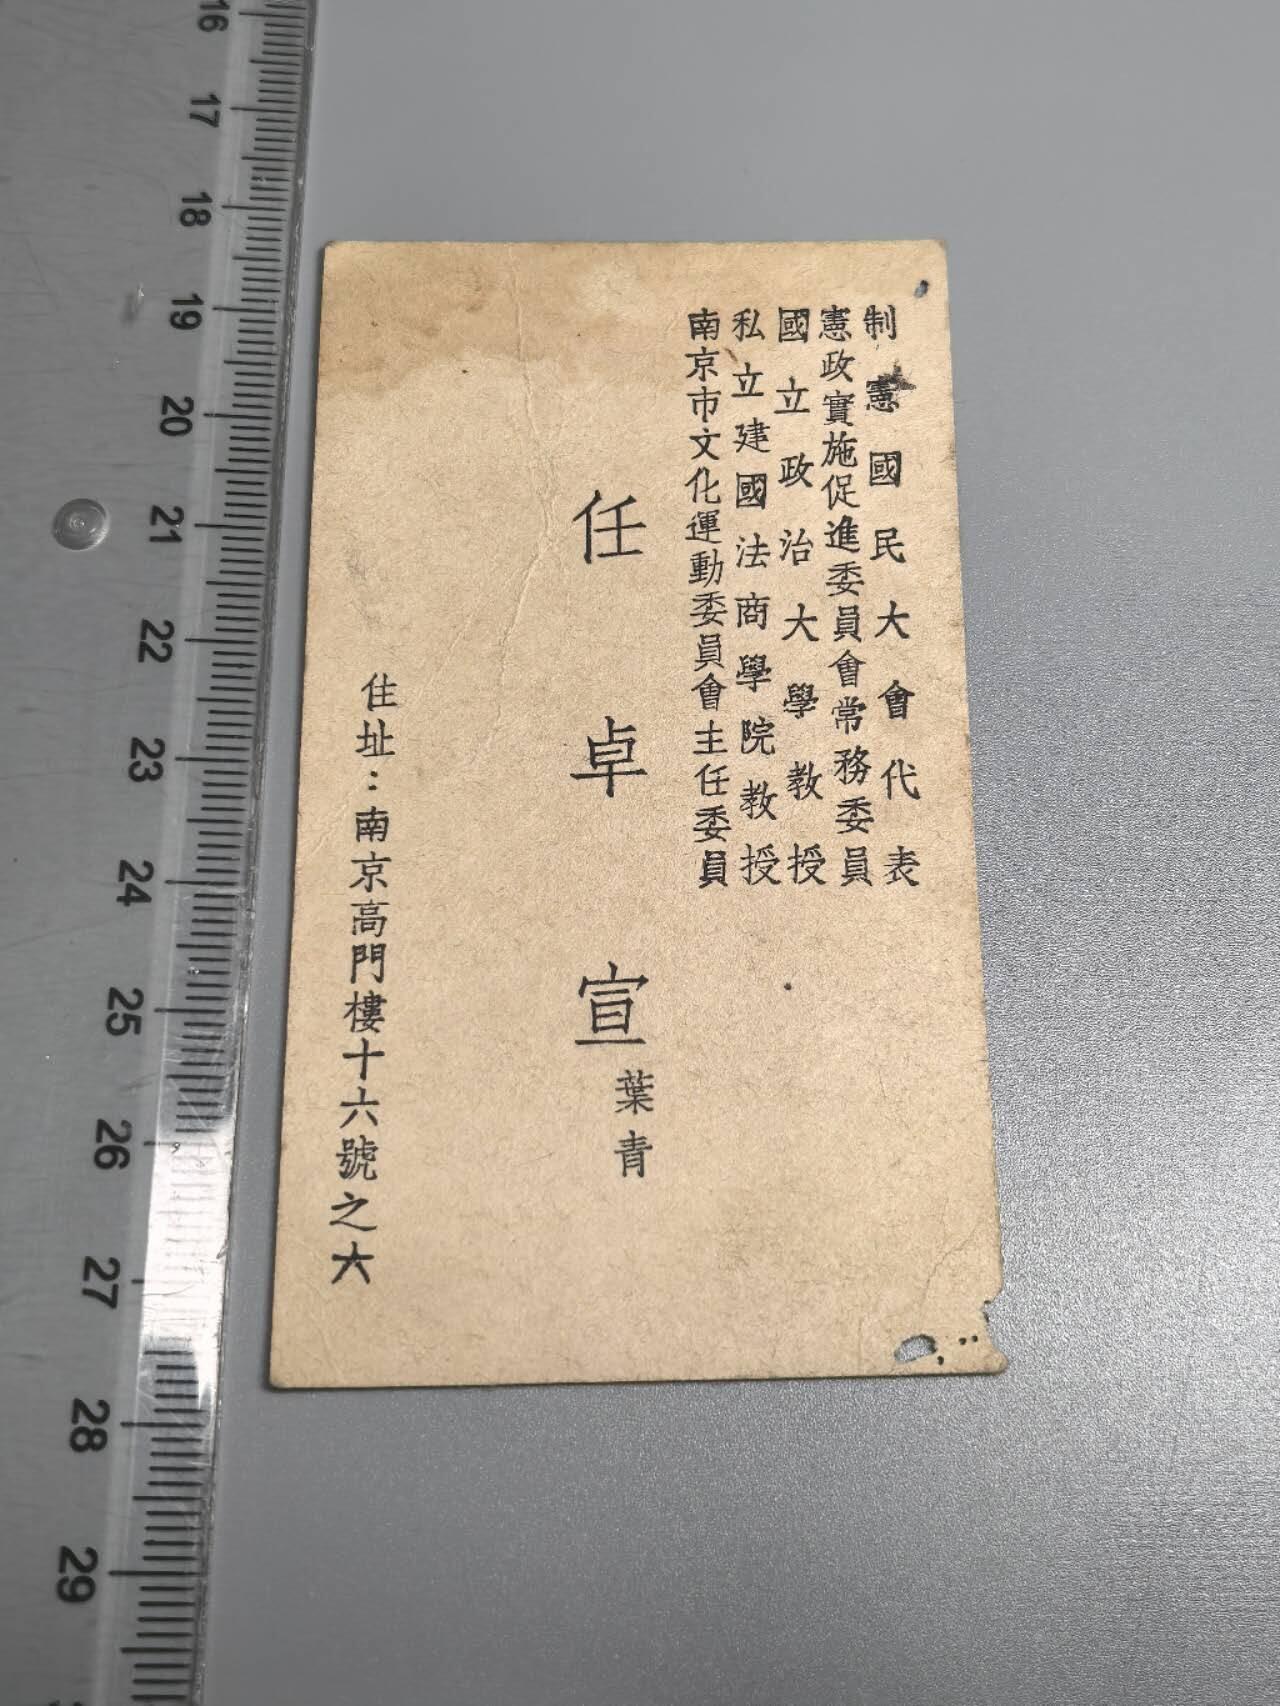 制憲國民大會代表
憲政實施促進委員會常務委員
國立政治大學教授
私立建國法商學院教授
南京市文化運動委員會主任委員
任卓宣
葉青
住址：南京高門樓十六號之六
16
17
18
19
20
21
22
23
24
25
26
27
28
29